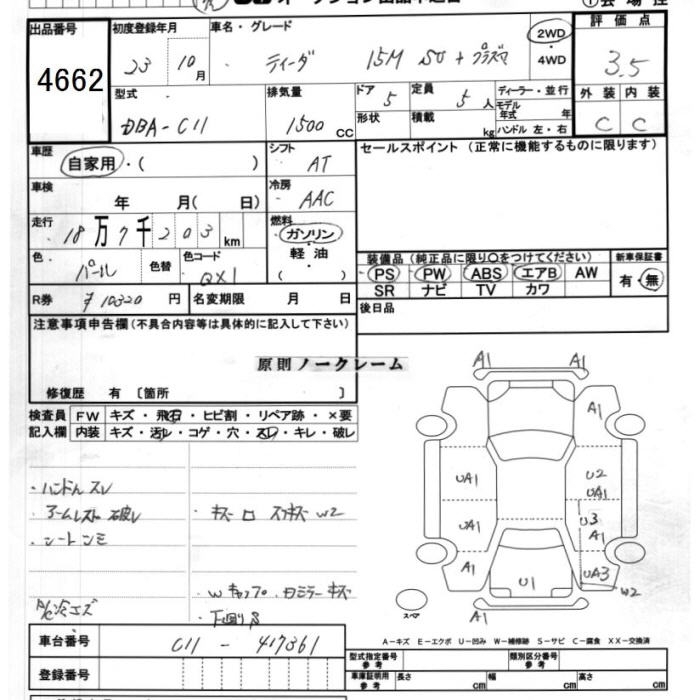 出品番号
4662
初度登録年月
23 10月
車名・グレード
ティーダ 15M SV + プラズマ
2WD
・
4WD
評価点
3.5
型式
DBA-C11
排気量
1500 CC
ドア 5
形状
定員 5 人
積載 kg
ディーラー・並行
モデル年式 年
ハンドル 左・右
外装 内装
C C
車歴
自家用・( )
シフト
AT
車検
年 月( 日)
冷房
AAC
走行
18万7千203 km
燃料
ガソリン
・
軽油
( )
色
パール
色替
色コード
QX1
R券 ¥10320 円
名変期限 月 日
セールスポイント(正常に機能するものに限ります)
装備品(純正品に限り○をつけてください)
PS PW ABS エアB AW
SR ナビ TV カワ
新車保証書
有・無
後日品
注意事項申告欄(不具合内容等は具体的に記入して下さい)
原則ノークレーム
修復歴 有〔箇所 〕
検査員記入欄
FW キズ・飛石・ヒビ割・リペア跡・×要
内装 キズ・汚レ・コゲ・穴・スレ・キレ・破レ
・ハンドルスレ
・アームレスト破レ
・シートシミ
・キズ
W2
キズ
・下廻りS
A1 A1
A1
UA1
U2
UA1
UA1
U3
A1
A1
U1
UA3
W2
A1
スペア
A-キズ E-エクボ U-凹み W-補修跡 S-サビ C-腐食 XX-交換済
車台番号
C11 - 417361
登録番号
型式指定番号 参考
類別区分番号 参考
車庫証明用 参考
長さ cm
幅 cm
高さ cm